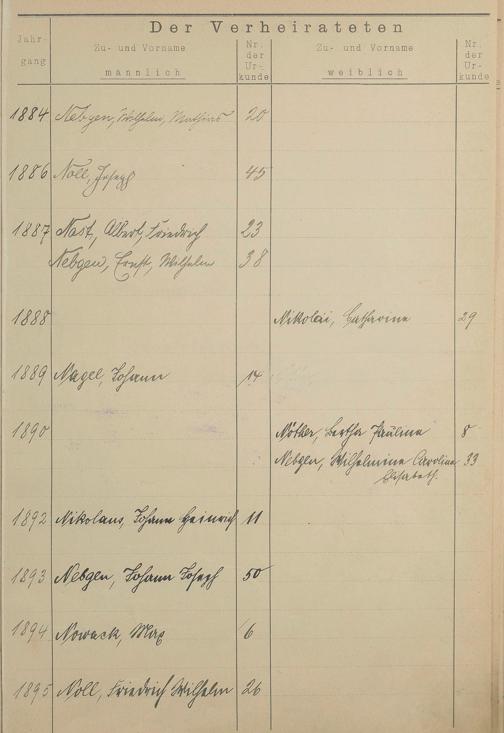 Der Verheirateten
Jahr-
gang
Zu- und Vorname
männlich
Nr.
der
Ur-
kunde
Zu- und Vorname
weiblich
Nr.
der
Ur-
kunde
1884 Nebgen, Wilhelm, Mathias 20
1886 Noll, Joseph 45
1887 Nast, Albert, Friedrich 23
Nebgen, Ernst, Wilhelm 38
1888 Nikolai, Catharine 29
1889 Nagel, Johann 14
1890 Nöther, Bertha Pauline 8
Nebgen, Wilhelmine Caroline 33
Elisabeth.
1892 Nikolaus, Johann Heinrich 11
1893 Nebgen, Johann Joseph 50
1894 Nowack, Max 6
1895 Noll, Friedrich Wilhelm 26